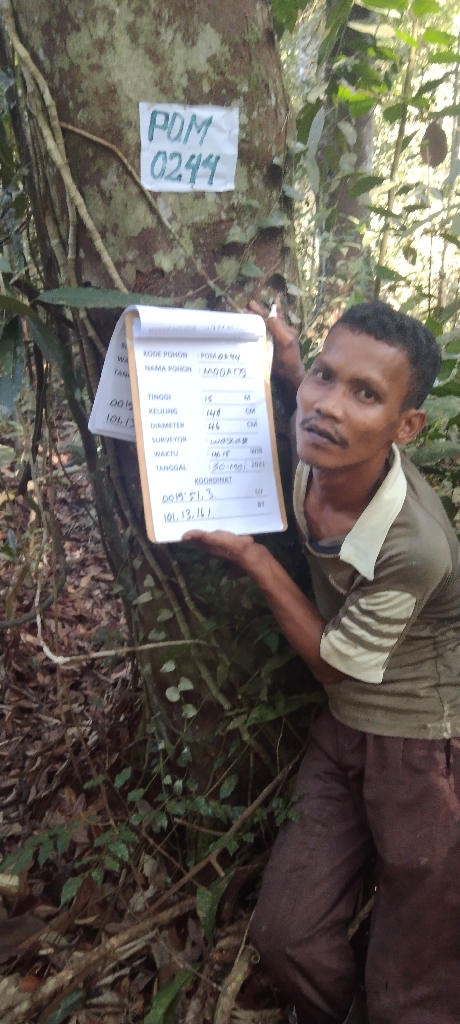 POM
0244
KODE POHON : POM 0244
NAMA POHON :
TINGGI : 15 M
KELILING : 148 CM
DIAMETER : 46 CM
SURVEYOR :
WAKTU : WIB
TANGGAL : 30-Mei 2021
KOORDINAT
0019'51.3. LU
101.13.161. BT